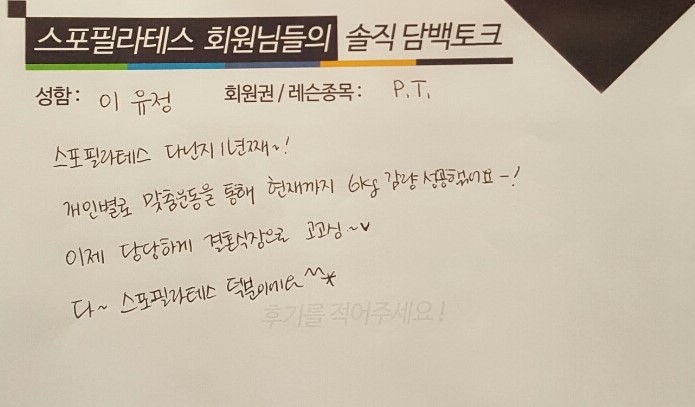 스포필라테스 회원님들의 솔직 담백토크
성함 : 이 유정 회원권 / 레슨종목 : P.T.
스포필라테스 다닌지 1년째~!
개인별로 맞춤운동을 통해 현재까지 6kg 감량 성공했어요-!
이제 당당하게 결혼식장으로 고고싱~♥
다~ 스포필라테스 덕분이에요^^*
후기를 적어주세요!